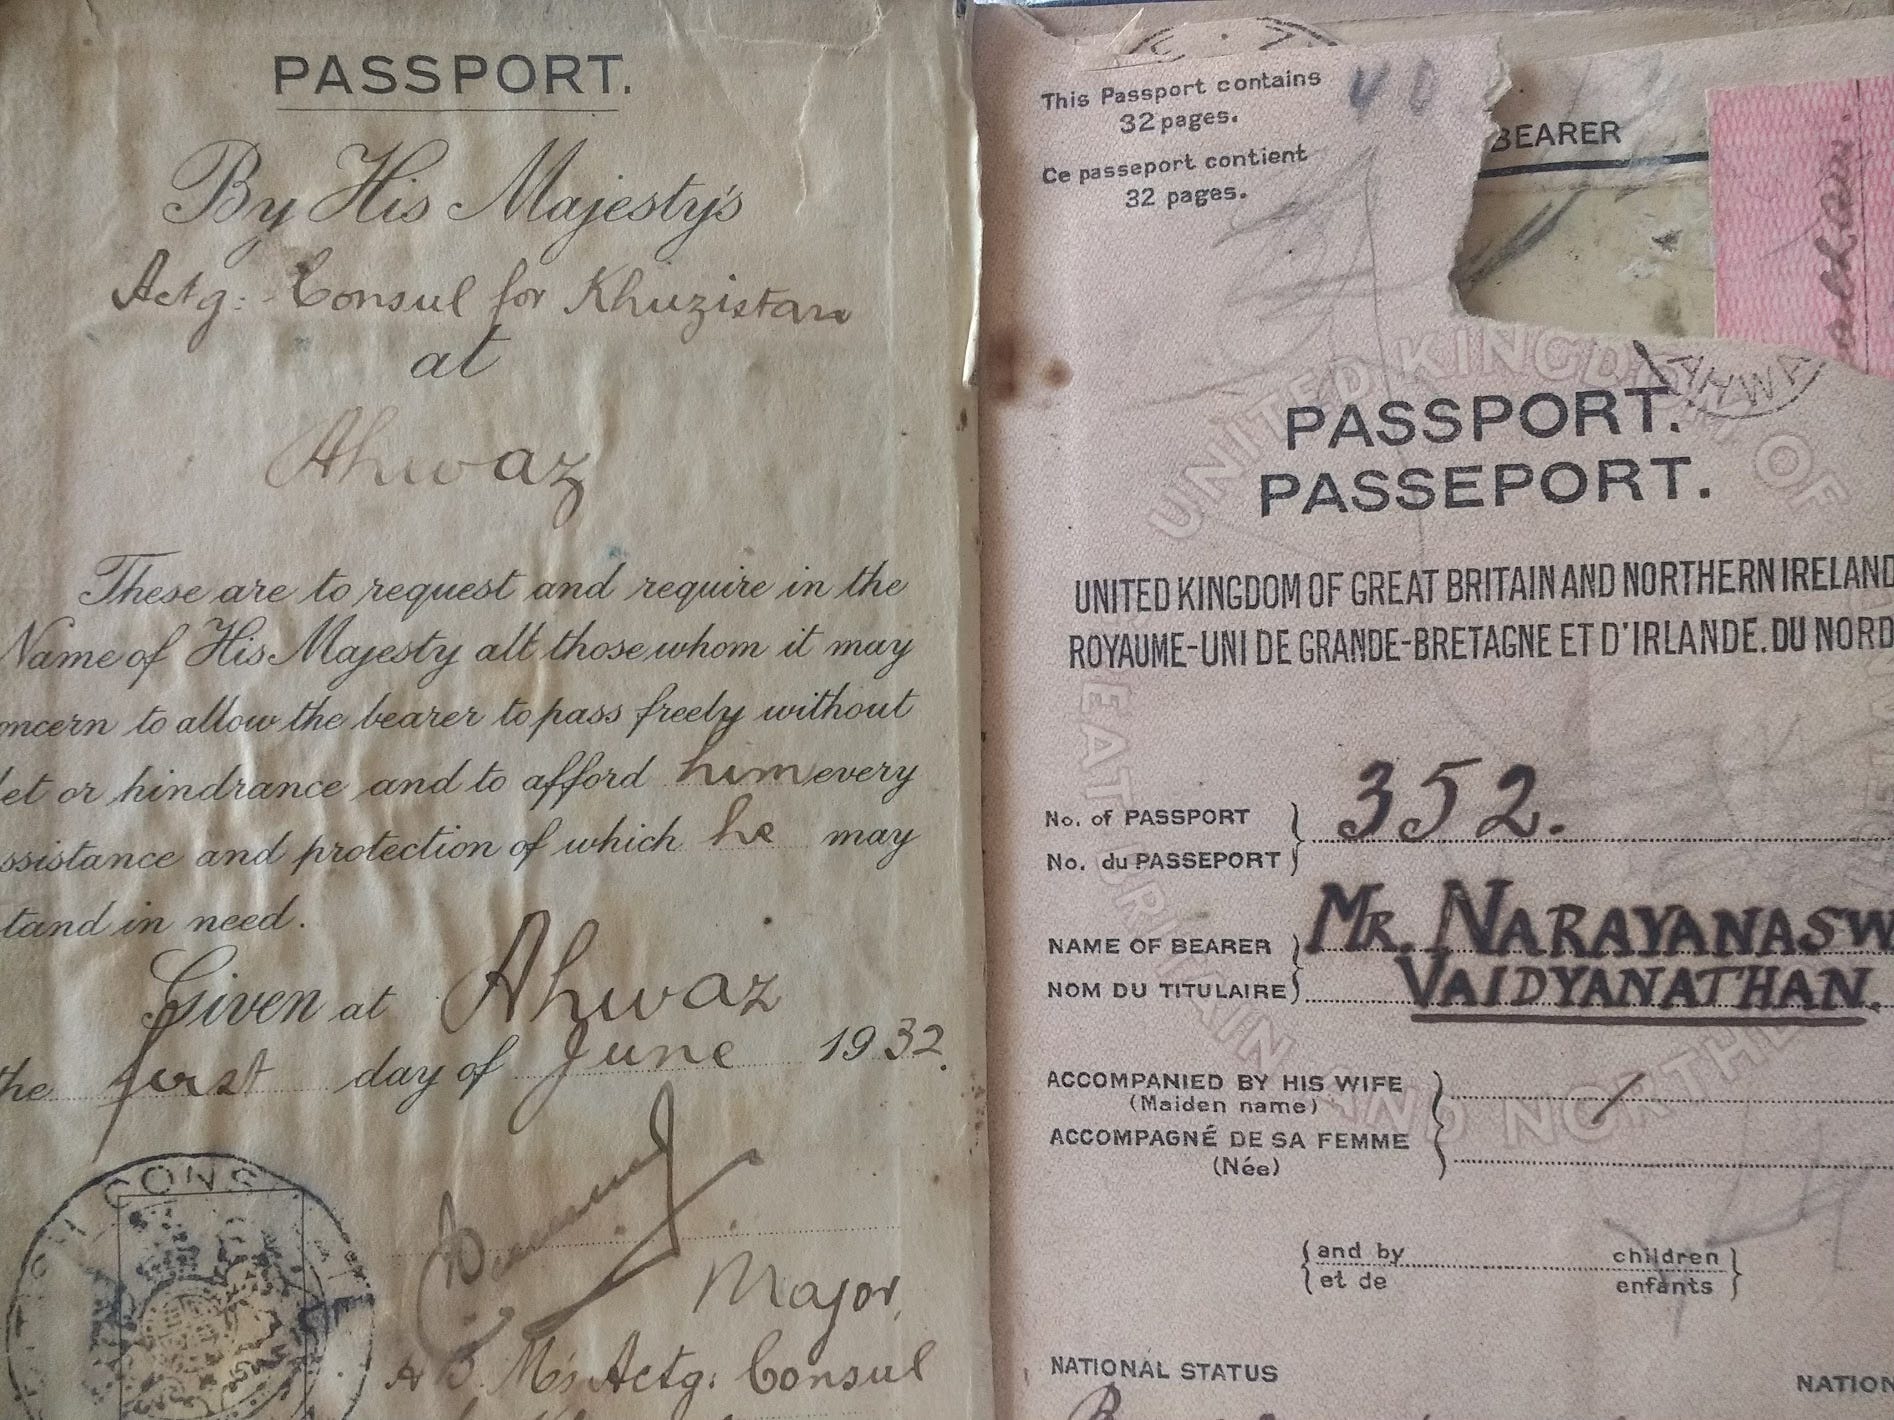 PASSPORT.
By His Majesty's
Actg: Consul for Khuzistan
at
Ahwaz
These are to request and require in the
Name of His Majesty all those whom it may
oncern to allow the bearer to pass freely without
let or hindrance and to afford him every
ssistance and protection of which he may
tand in need.
Given at Ahwaz
the first day of June 1932.
CONS
Major,
H B. M's Actg: Consul
This Passport contains
32 pages.
Ce passeport contient
32 pages.
BEARER
AHWA
PASSPORT.
PASSEPORT.
UNITED KINGDOM OF GREAT BRITAIN AND NORTHERN IRELAND
ROYAUME-UNI DE GRANDE-BRETAGNE ET D'IRLANDE DU NORD
UNITED KINGDOM OF
No. of PASSPORT
No. du PASSEPORT
352.
NAME OF BEARER
NOM DU TITULAIRE
MR. NARAYANASW
VAIDYANATHAN.
ACCOMPANIED BY HIS WIFE
(Maiden name)
ACCOMPAGNÉ DE SA FEMME
(Née)
and by children
et de enfants
NATIONAL STATUS
NATION